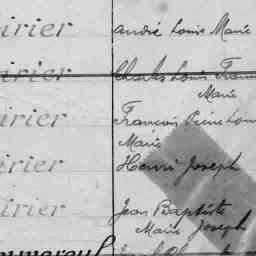 irier André Louis Marie
irier Charles Louis Fran
Marie
irier François Pierre Lou
Marie
irier Henri Joseph
irier Jean Baptiste
Marie Joseph